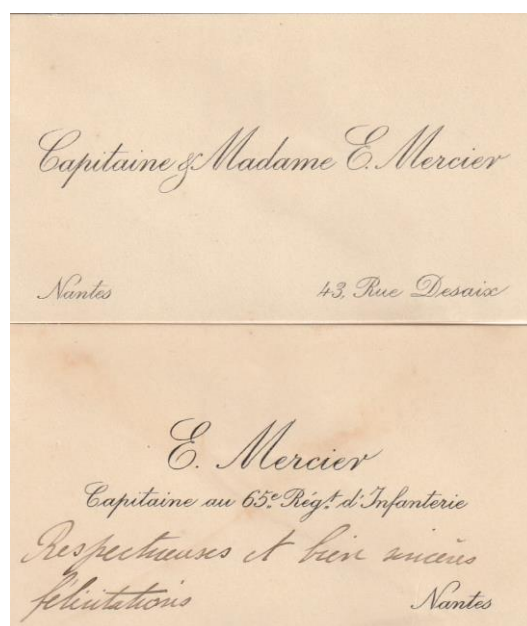 Capitaine & Madame E. Mercier
Nantes 43, Rue Desaix
E. Mercier
Capitaine au 65e Régt d'Infanterie
Respectueuses et bien sincères
félicitations Nantes